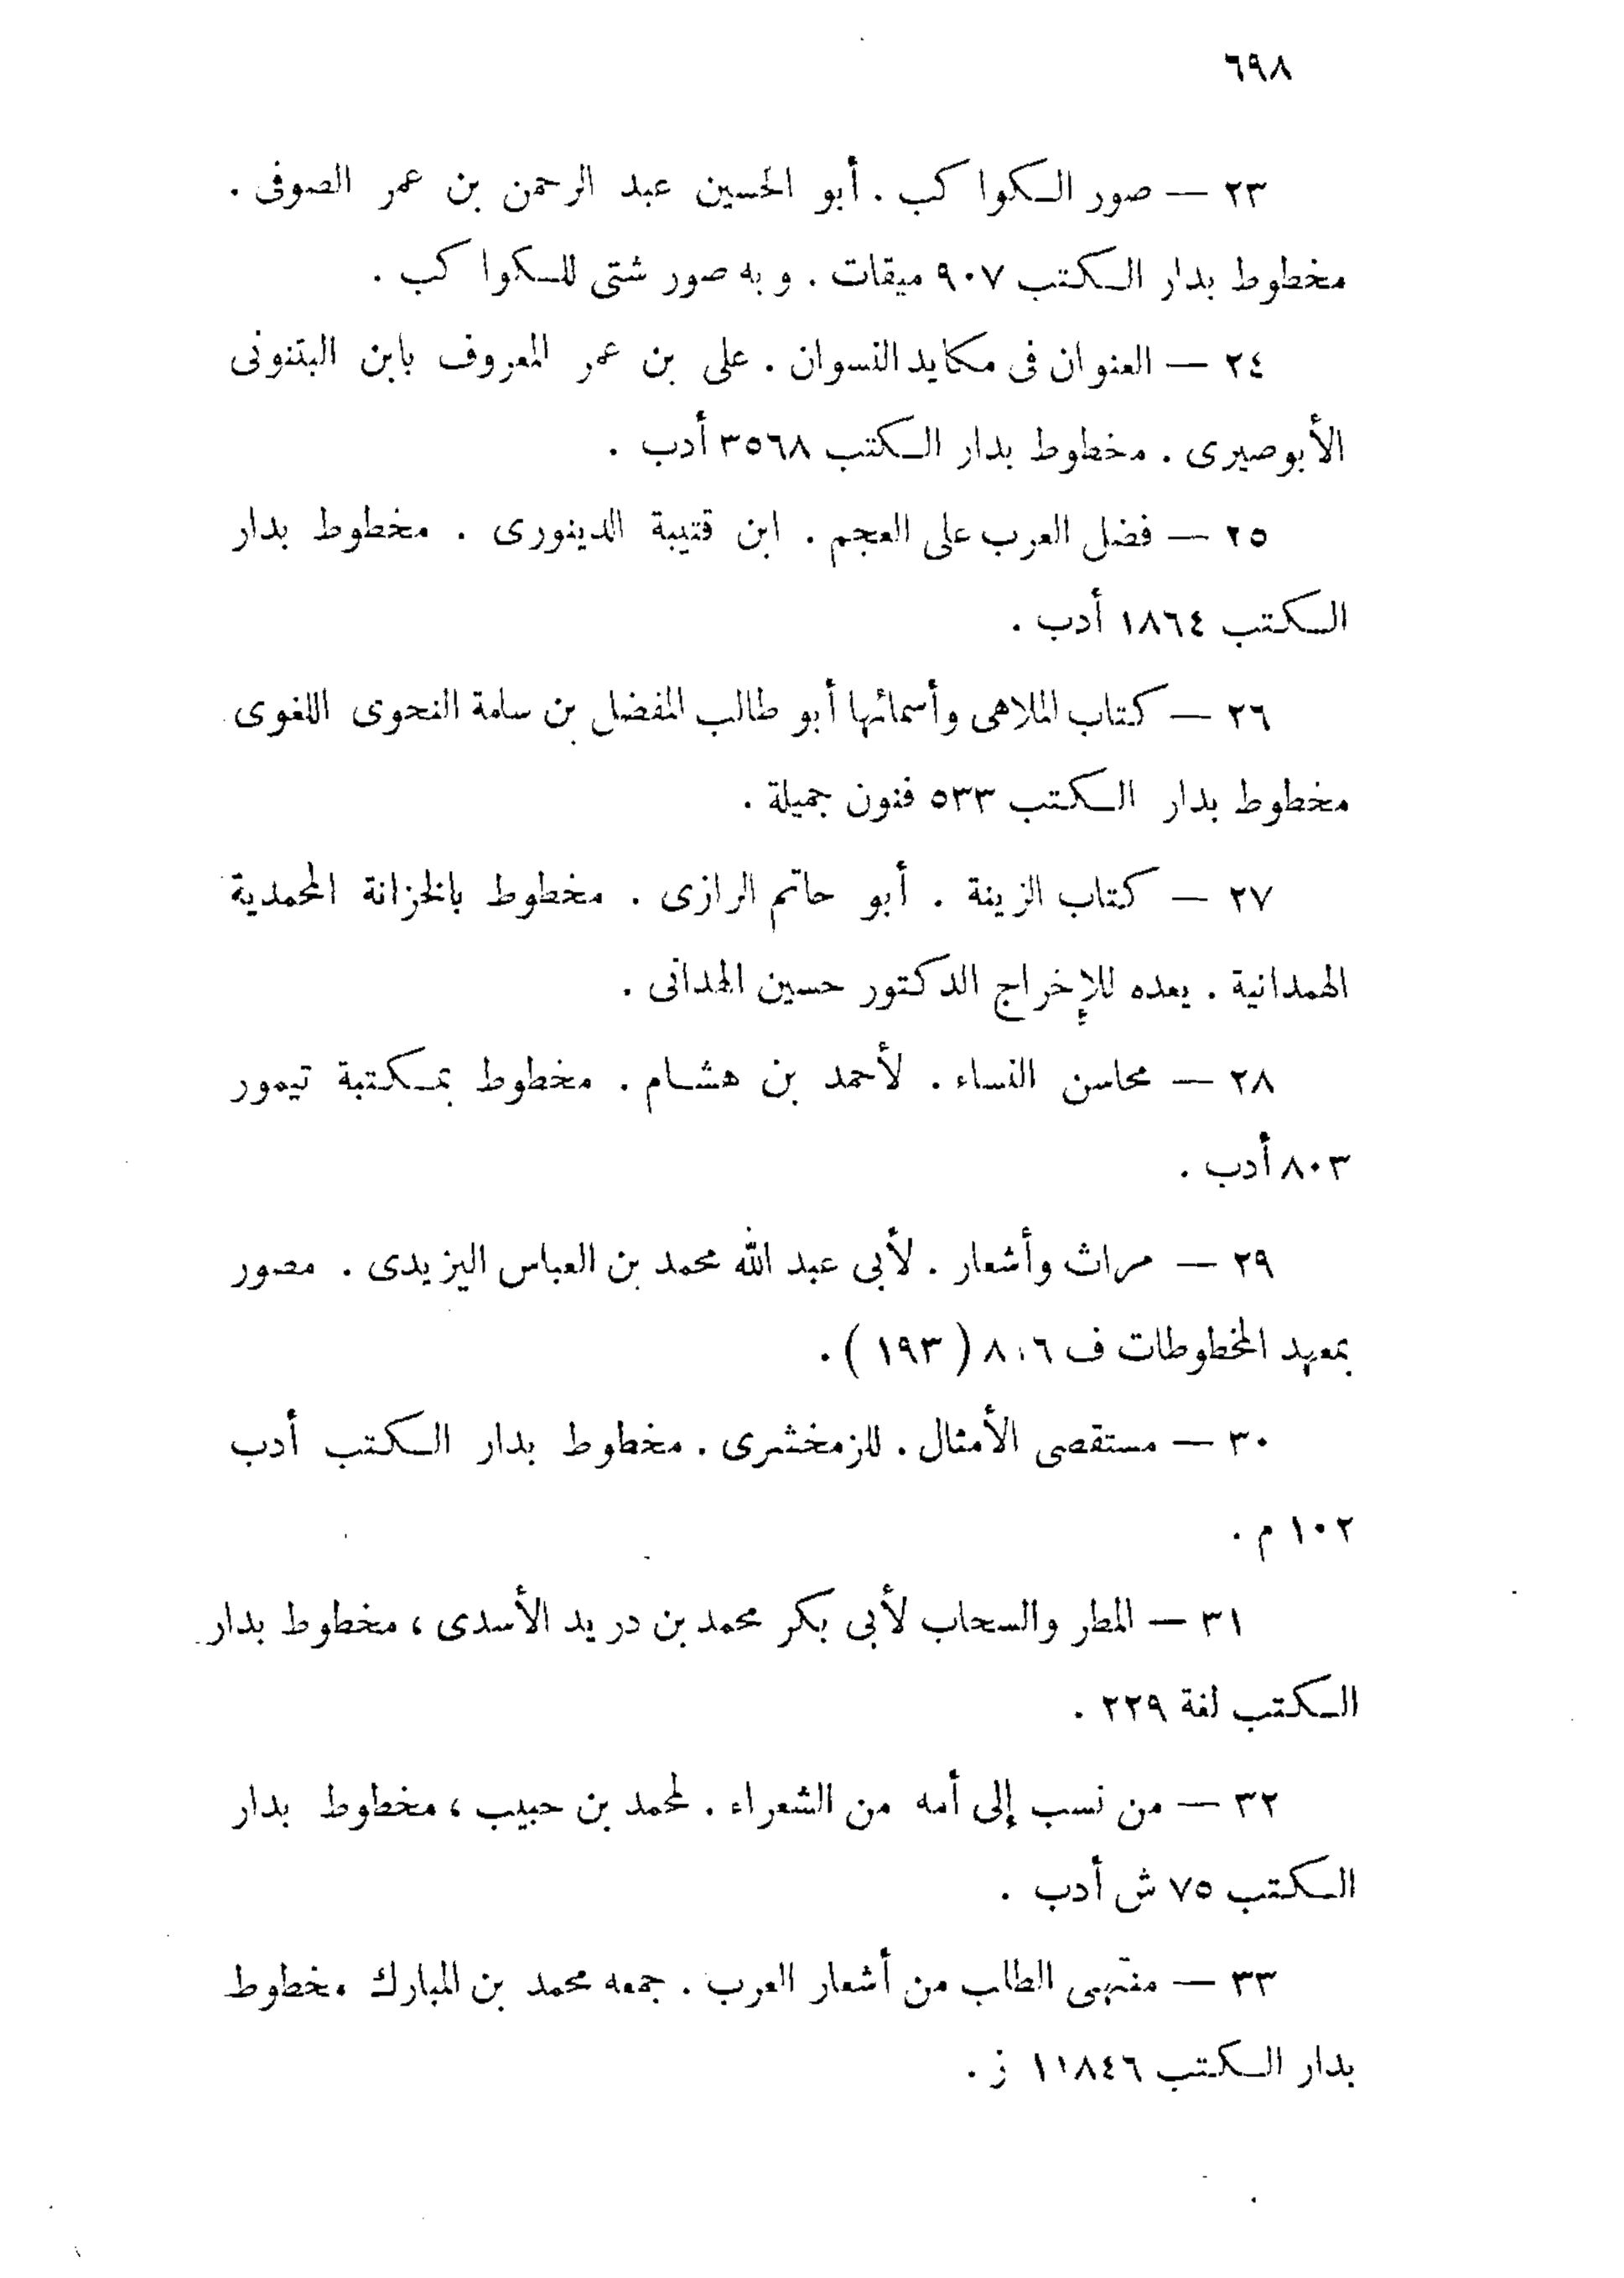 ٦٩٨
٢٣ — صور الكواكب . أبو الحسين عبد الرحمن بن عمر الصوفى .
مخطوط بدار الكتب ٩٠٧ ميقات . وبه صور شتى للكواكب .
٢٤ — العنوان فى مكايد النسوان . على بن عمر المعروف بابن البتنونى
الأبوصيرى . مخطوط بدار الكتب ٣٥٦٨ أدب .
٢٥ — فضل العرب على العجم . ابن قتيبة الدينورى . مخطوط بدار
الكتب ١٨٦٤ أدب .
٢٦ — كتاب الملاهى وأسمائها أبو طالب المفضل بن سلمة النحوى اللغوى
مخطوط بدار الكتب ٥٣٣ فنون جميلة .
٢٧ — كتاب الزينة . أبو حاتم الرازى . مخطوط بالخزانة المحمدية
الهمدانية . يعده للإخراج الدكتور حسين الهمدانى .
٢٨ — محاسن النساء . لأحمد بن هشام . مخطوط بمكتبة تيمور
٨٠٣ أدب .
٢٩ — مراث وأشعار . لأبى عبد الله محمد بن العباس اليزيدى . مصور
بمعهد المخطوطات ف ٨٠٦ ( ١٩٣ ) .
٣٠ — مستقصى الأمثال . للزمخشرى . مخطوط بدار الكتب أدب
١٠٢ م .
٣١ — المطر والسحاب لأبى بكر محمد بن دريد الأسدى ، مخطوط بدار
الكتب لغة ٢٢٩ .
٣٢ — من نسب إلى أمه من الشعراء . لمحمد بن حبيب ، مخطوط بدار
الكتب ٧٥ ش أدب .
٣٣ — منتهى الطلب من أشعار العرب . جمعه محمد بن المبارك . مخطوط
بدار الكتب ١١٨٤٦ ز .